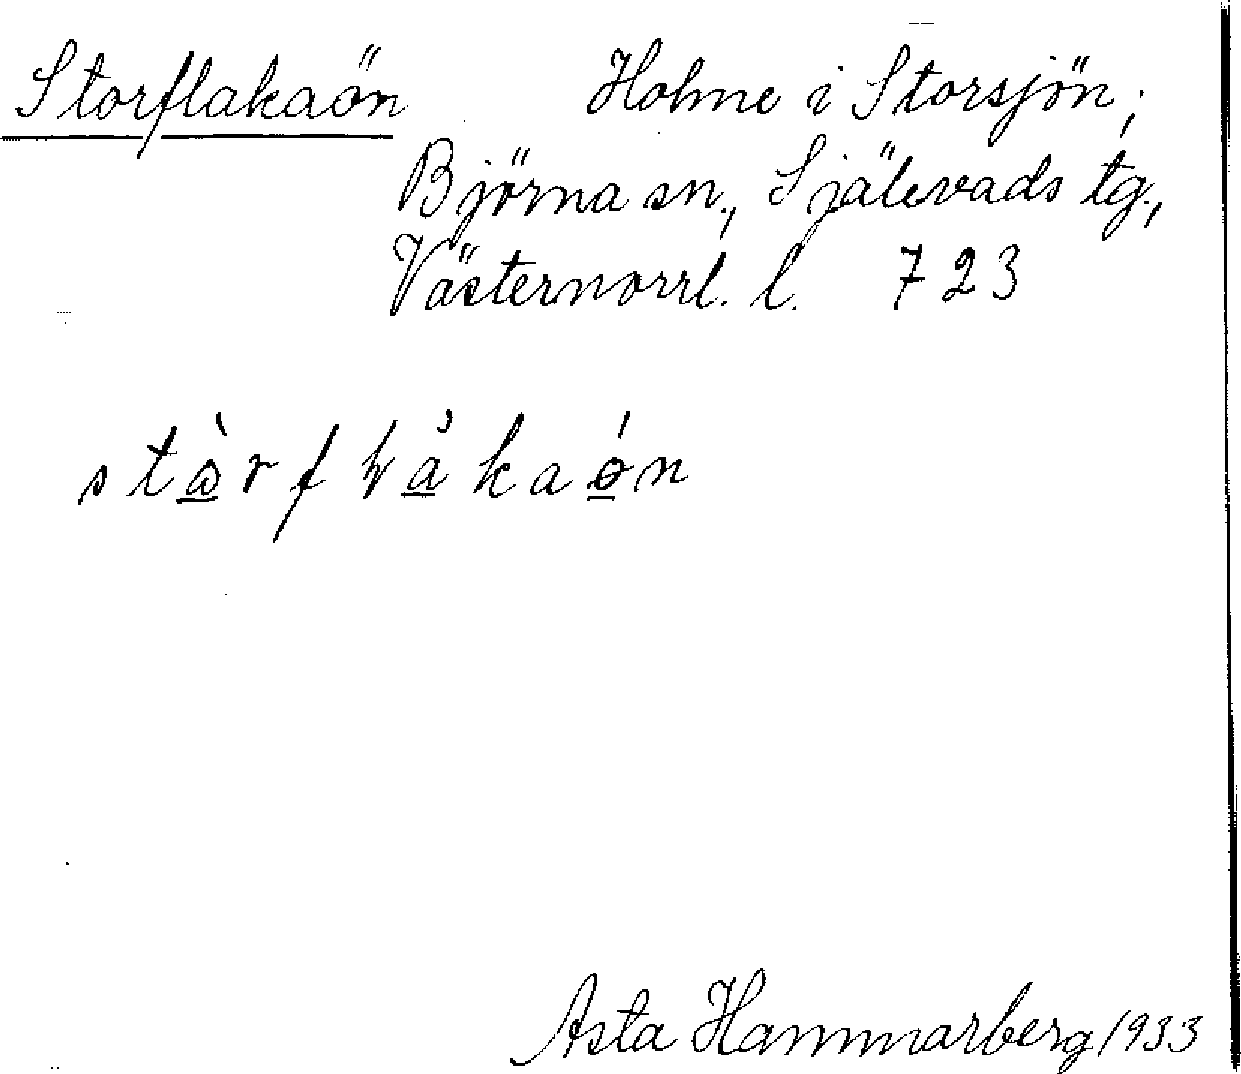 Storflakaön Holme i Storsjön;
Björna sn., Själevads tg.,
Västernorrl. l. 723
Asta Hammarberg 1933